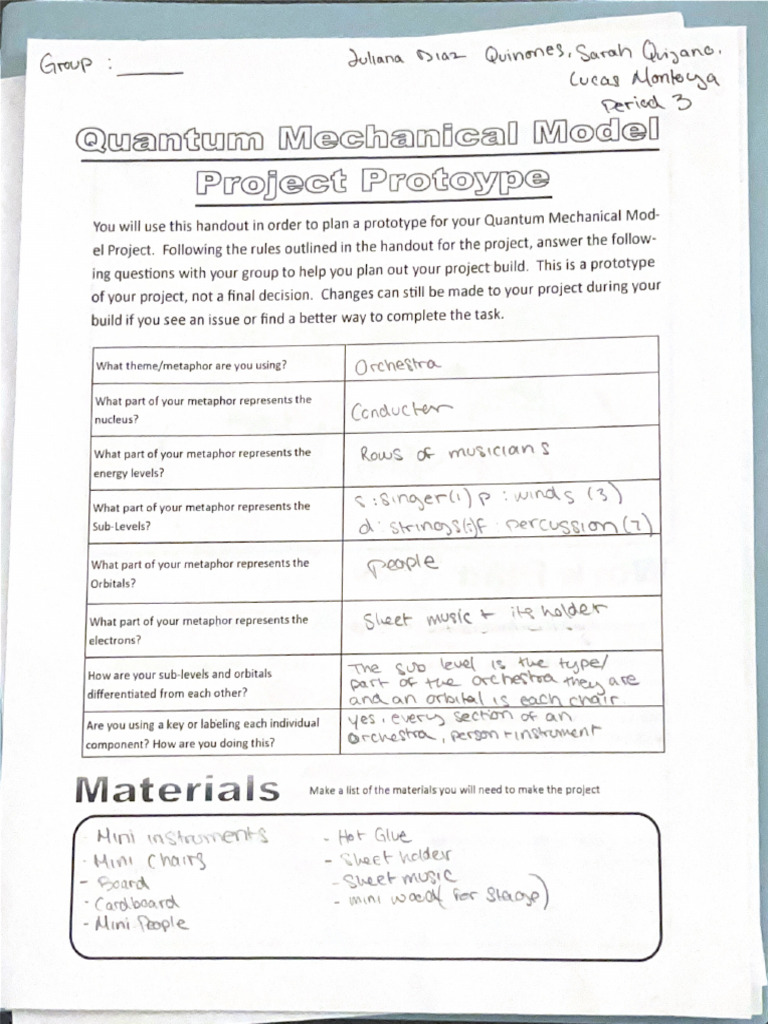 Group : ____
Juliana Diaz Quinones, Sarah Quijano,
Lucas Montoya
Period 3
Quantum Mechanical Model
Project Protoype
You will use this handout in order to plan a prototype for your Quantum Mechanical Mod-
el Project. Following the rules outlined in the handout for the project, answer the follow-
ing questions with your group to help you plan out your project build. This is a prototype
of your project, not a final decision. Changes can still be made to your project during your
build if you see an issue or find a better way to complete the task.
What theme/metaphor are you using?
Orchestra
What part of your metaphor represents the
nucleus?
Conducter
What part of your metaphor represents the
energy levels?
Rows of musicians
What part of your metaphor represents the
Sub-Levels?
s : singer(1) p : winds (3)
d : strings( ) f : percussion (7)
What part of your metaphor represents the
Orbitals?
people
What part of your metaphor represents the
electrons?
Sheet music + its holder
How are your sub-levels and orbitals
differentiated from each other?
The sub level is the type/
part of the orchestra they are
and an orbital is each chair.
Are you using a key or labeling each individual
component? How are you doing this?
yes, every section of an
orchestra, person + instrument
Materials
Make a list of the materials you will need to make the project
- Mini instruments
- Mini Chairs
- Board
- Cardboard
- Mini People
- Hot Glue
- Sheet holder
- Sheet music
- mini wood (for stage)